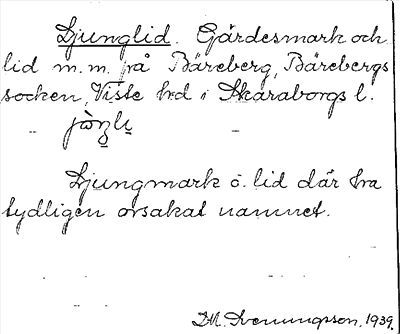 Ljunglid. Gärdesmark och
lid m.m. på Bäreberg, Bärebergs
socken, Viste hd i Skaraborgs l.
Ljungmark o. lid där tra
tydligen orsakat namnet.
Svenningsson, 1939.